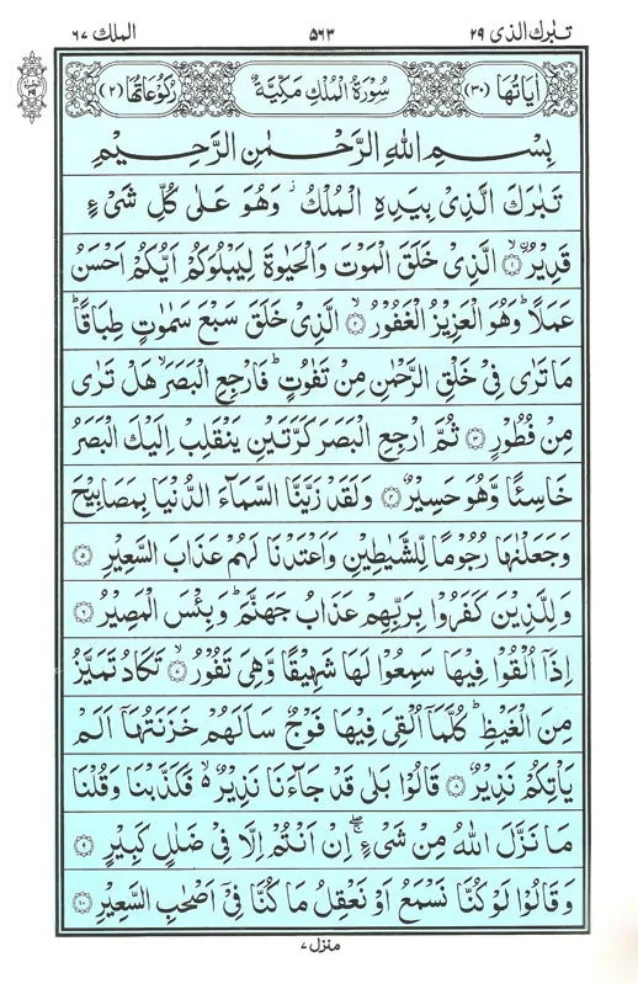 تبٰرك الذی ۲۹ ۵۶۳ الملك ۶۷
اٰيَاتُهَا (۳۰) سُوْرَةُ الْمُلْكِ مَكِّيَّةٌ رُكُوْعَاتُهَا (۲)
بِسْمِ اللهِ الرَّحْمٰنِ الرَّحِيْمِ
تَبٰرَكَ الَّذِیْ بِيَدِهِ الْمُلْكُ ز وَهُوَ عَلٰی كُلِّ شَیْءٍ
قَدِيْرُ ۙ﴿۱﴾ الَّذِیْ خَلَقَ الْمَوْتَ وَالْحَيٰوةَ لِيَبْلُوَكُمْ اَيُّكُمْ اَحْسَنُ
عَمَلًا ؕ وَهُوَ الْعَزِيْزُ الْغَفُوْرُ ۙ﴿۲﴾ الَّذِیْ خَلَقَ سَبْعَ سَمٰوٰتٍ طِبَاقًا ؕ
مَا تَرٰی فِیْ خَلْقِ الرَّحْمٰنِ مِنْ تَفٰوُتٍ ؕ فَارْجِعِ الْبَصَرَ ۙ هَلْ تَرٰی
مِنْ فُطُوْرٍ ﴿۳﴾ ثُمَّ ارْجِعِ الْبَصَرَ كَرَّتَيْنِ يَنْقَلِبْ اِلَيْكَ الْبَصَرُ
خَاسِئًا وَّهُوَ حَسِيْرٌ ﴿۴﴾ وَلَقَدْ زَيَّنَّا السَّمَآءَ الدُّنْيَا بِمَصَابِيْحَ
وَجَعَلْنٰهَا رُجُوْمًا لِّلشَّيٰطِيْنِ وَاَعْتَدْنَا لَهُمْ عَذَابَ السَّعِيْرِ ﴿۵﴾
وَلِلَّذِيْنَ كَفَرُوْا بِرَبِّهِمْ عَذَابُ جَهَنَّمَ ؕ وَبِئْسَ الْمَصِيْرُ ﴿۶﴾
اِذَآ اُلْقُوْا فِيْهَا سَمِعُوْا لَهَا شَهِيْقًا وَّهِیَ تَفُوْرُ ۙ﴿۷﴾ تَكَادُ تَمَيَّزُ
مِنَ الْغَيْظِ ؕ كُلَّمَآ اُلْقِیَ فِيْهَا فَوْجٌ سَاَلَهُمْ خَزَنَتُهَآ اَلَمْ
يَاْتِكُمْ نَذِيْرٌ ﴿۸﴾ قَالُوْا بَلٰی قَدْ جَآءَنَا نَذِيْرٌ ۙ۬ فَكَذَّبْنَا وَقُلْنَا
مَا نَزَّلَ اللهُ مِنْ شَیْءٍ ۖۚ اِنْ اَنْتُمْ اِلَّا فِیْ ضَلٰلٍ كَبِيْرٍ ﴿۹﴾
وَقَالُوْا لَوْ كُنَّا نَسْمَعُ اَوْ نَعْقِلُ مَا كُنَّا فِیْۤ اَصْحٰبِ السَّعِيْرِ ﴿۱۰﴾
منزل ۷